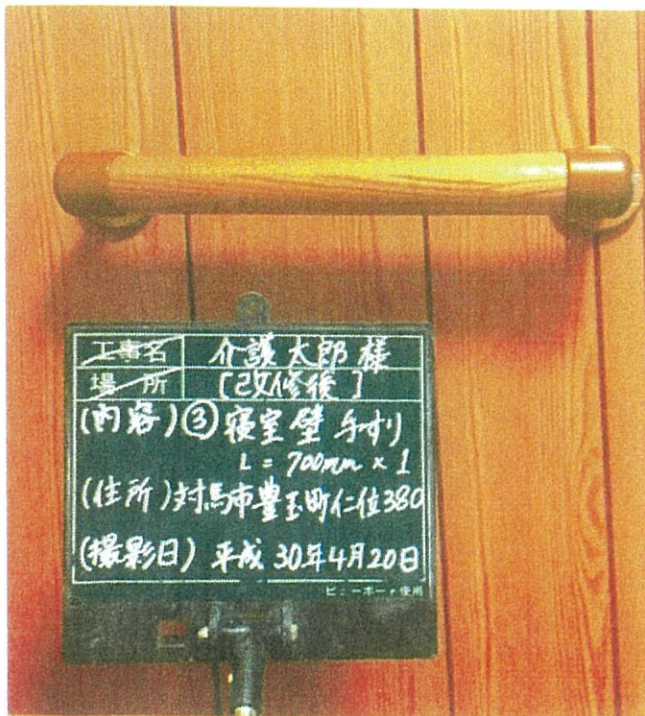 工事名 介護太郎様
場所 [改修後]
(内容)③寝室壁 手すり
L=700mm×1
(住所)対馬市豊玉町仁位380
(撮影日)平成30年4月20日